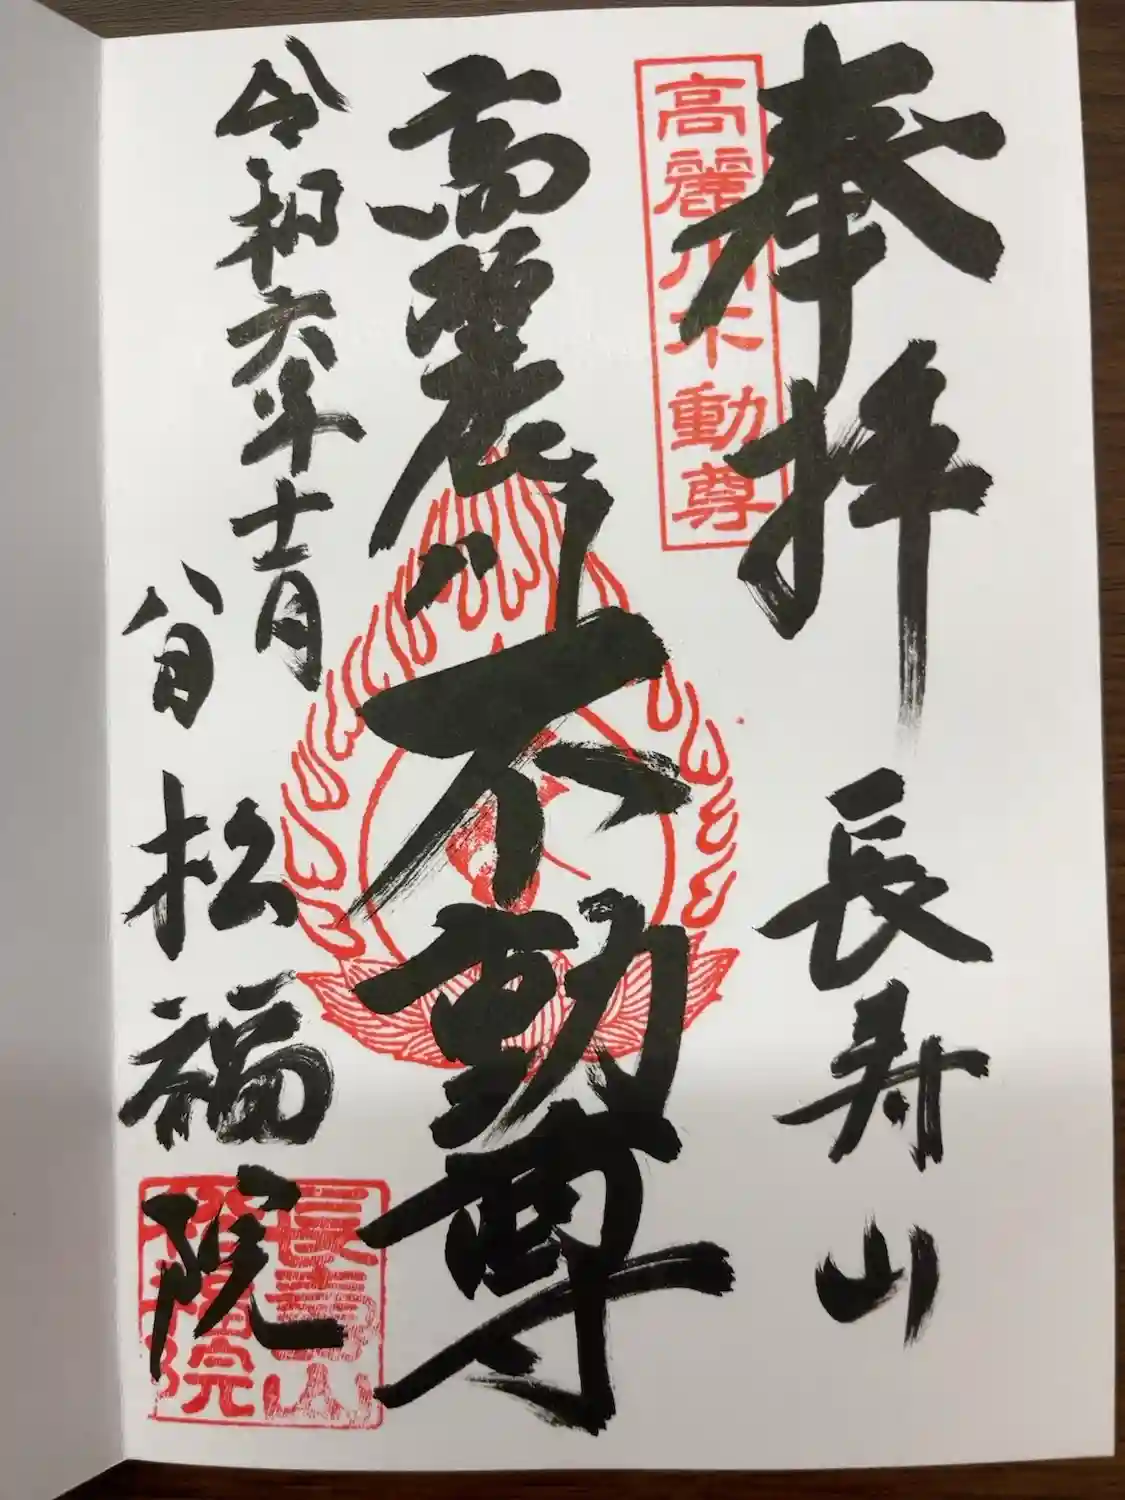 奉拝
長寿山
高麗川不動尊
高麗川不動尊
令和六年十一月
八日
松福院
長寿山
松福院